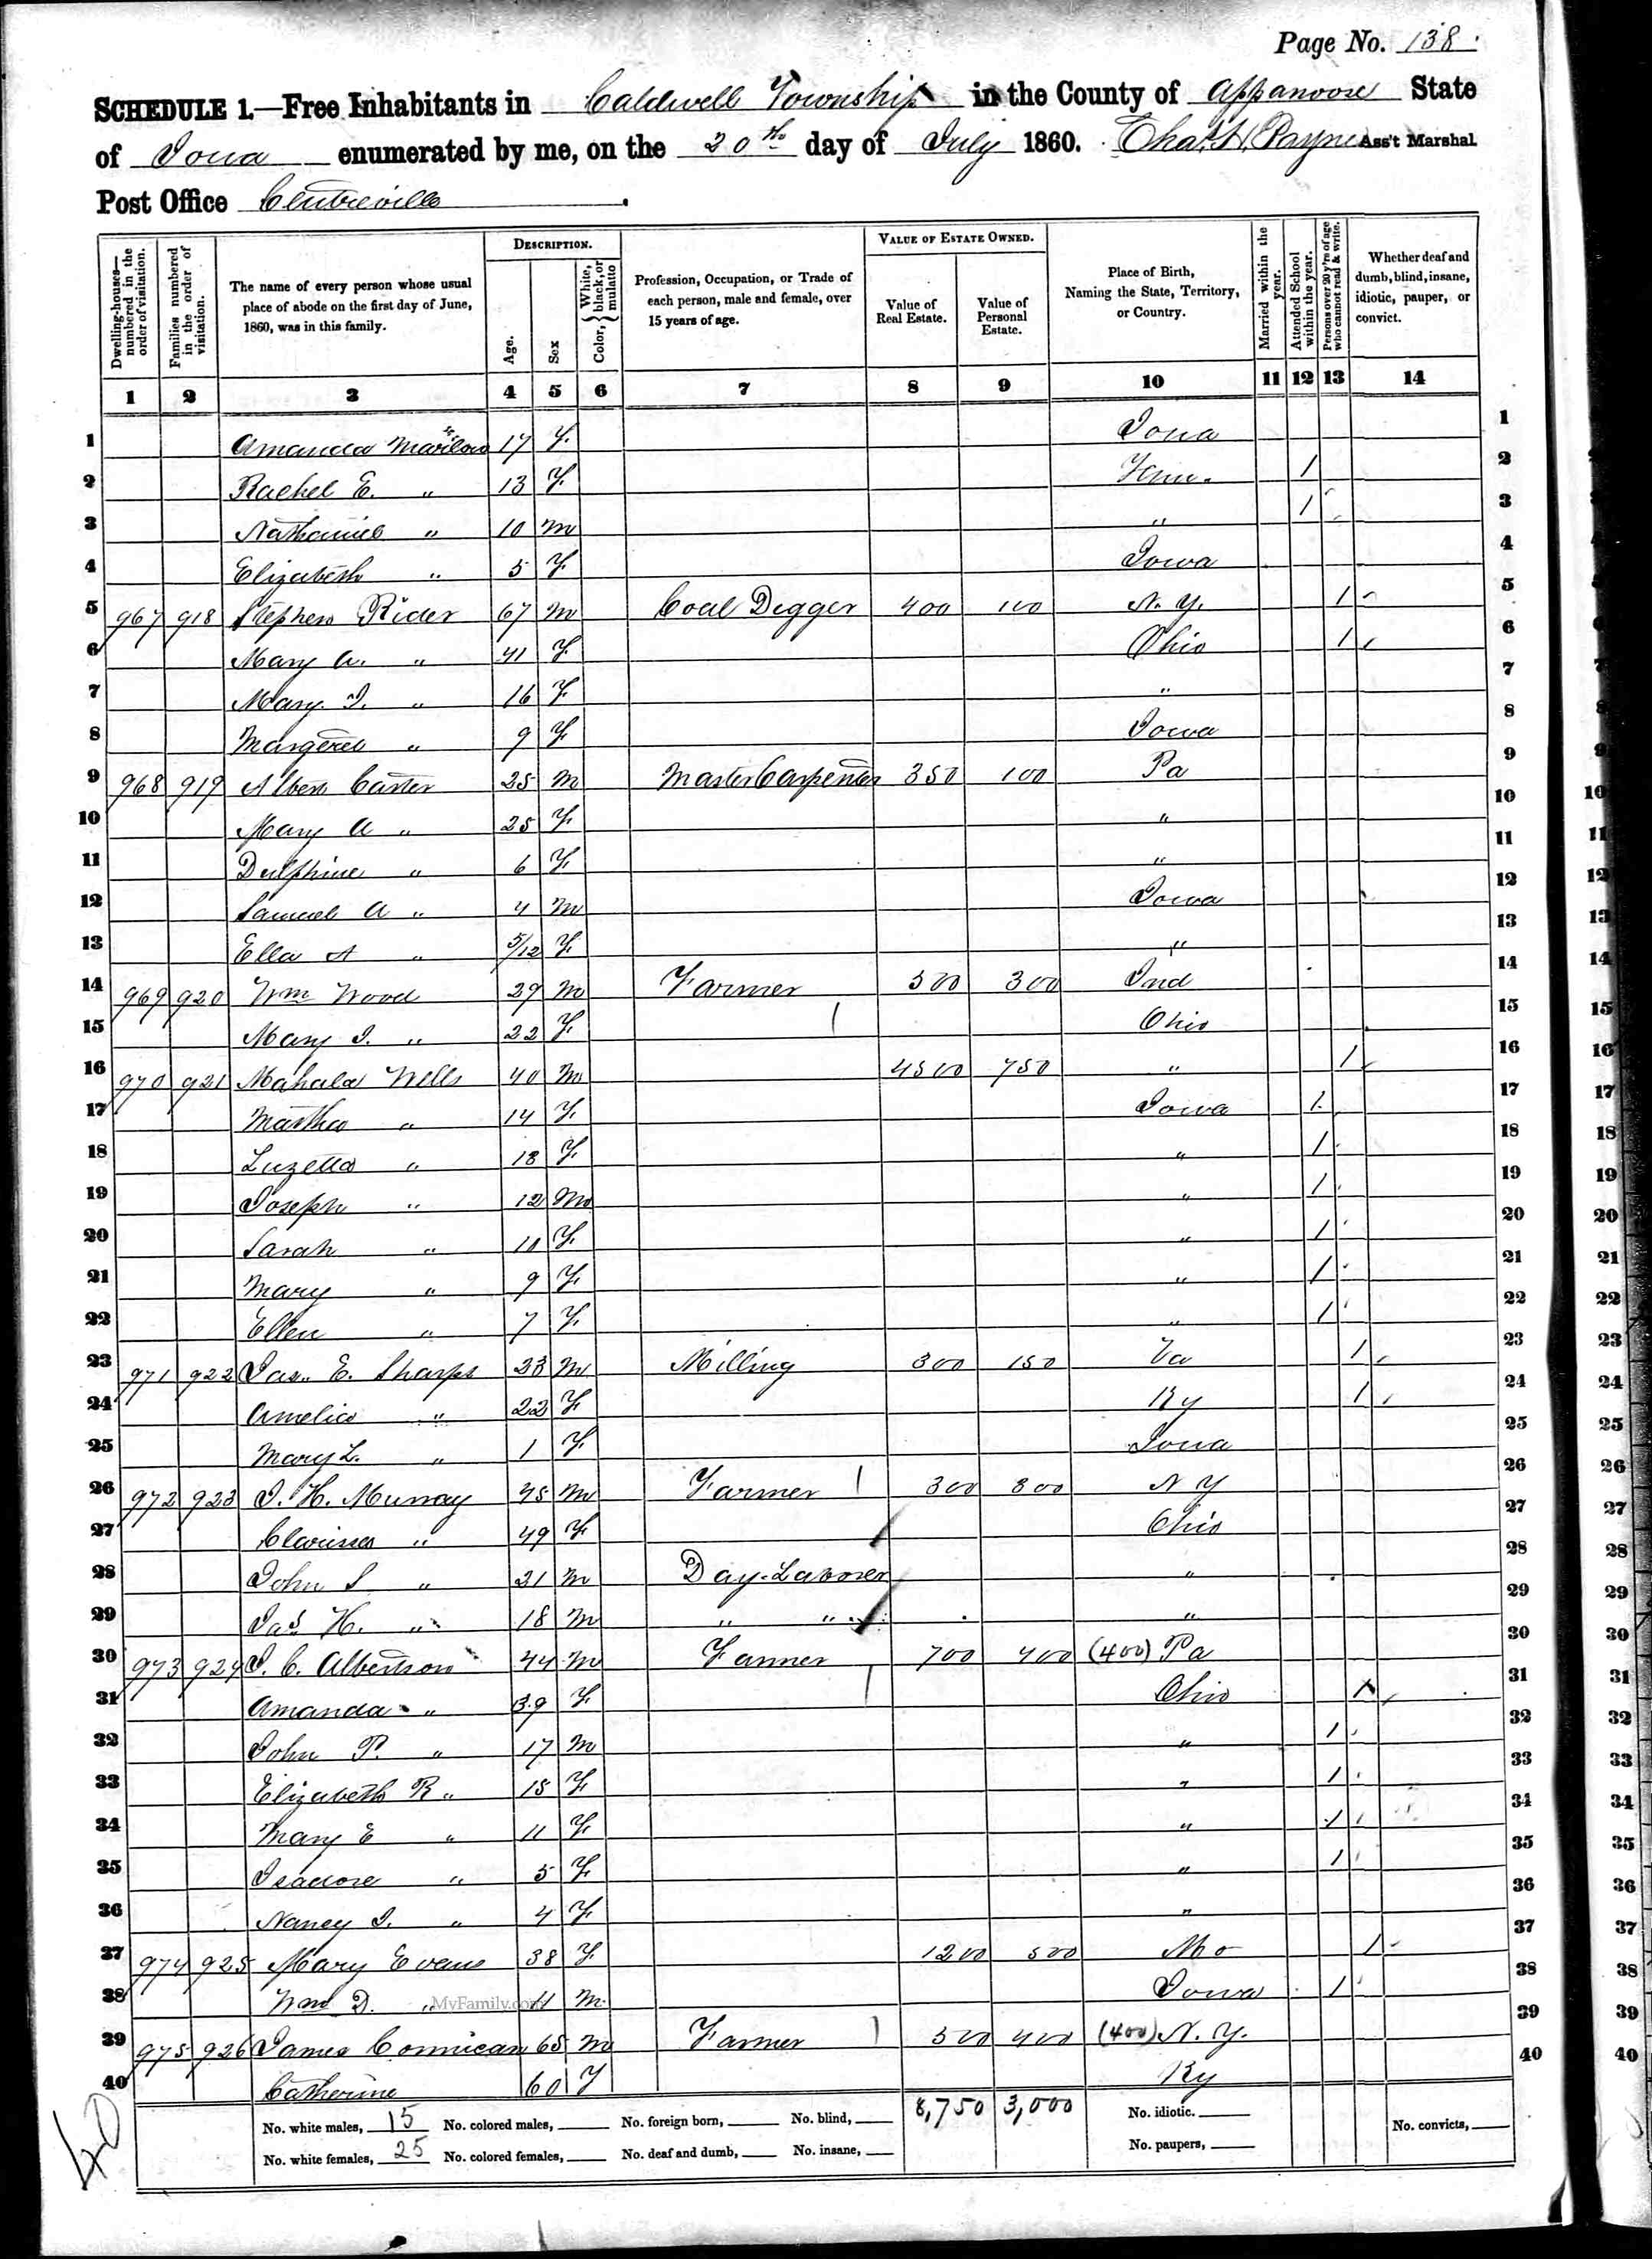 Page No. 138.
SCHEDULE 1.—Free Inhabitants in Caldwell Township in the County of Appanoose State
of Iowa enumerated by me, on the 20th day of July 1860. Chas. H. Payne Ass't Marshal
Post Office Centreville
Dwelling-houses—numbered in the order of visitation.
Families numbered in the order of visitation.
The name of every person whose usual place of abode on the first day of June, 1860, was in this family.
DESCRIPTION.
Age.
Sex
Color, { White, black, or mulatto
Profession, Occupation, or Trade of each person, male and female, over 15 years of age.
VALUE OF ESTATE OWNED.
Value of Real Estate.
Value of Personal Estate.
Place of Birth, Naming the State, Territory, or Country.
Married within the year.
Attended School within the year.
Persons over 20 y'rs of age who cannot read & write.
Whether deaf and dumb, blind, insane, idiotic, pauper, or convict.
1 2 3 4 5 6 7 8 9 10 11 12 13 14
1 Amanda Marlow 17 F. Iowa 1
2 Rachel E. " 13 F Tenn. 1 2
3 Nathaniel " 10 M " 1 3
4 Elizabeth " 5 F Iowa 4
5 967 918 Stephen Rider 67 M Coal Digger 400 100 N. Y. 1 5
6 Mary A. " 41 F Ohio 1 6
7 Mary J. " 16 F " 7
8 Margeret " 9 F Iowa 8
9 968 919 Albert Carter 25 M Master Carpenter 350 100 Pa 9
10 Mary A " 25 F " 10
11 Delphine " 6 F " 11
12 Samuel A " 4 M Iowa 12
13 Ella A " 5/12 F " 13
14 969 920 Wm Wood 29 M Farmer 500 300 Ind 14
15 Mary J. " 22 F Ohio 15
16 970 921 Mahala Wells 40 M 4500 750 " 1 16
17 Martha " 14 F Iowa 1 17
18 Luzetta " 13 F " 1 18
19 Joseph " 12 M " 1 19
20 Sarah " 10 F " 1 20
21 Mary " 9 F " 1 21
22 Ellen " 7 F " 1 22
23 971 922 Jas. E. Sharps 23 M Milling 300 150 Va 1 23
24 Amelia " 22 F Ky 1 24
25 Mary L. " 1 F Iowa 25
26 972 923 J. H. Murray 45 M Farmer 300 300 N Y 26
27 Clarissa " 49 F Ohio 27
28 John S " 21 M Day-Laborer " 28
29 Jas H. " 18 M " " " 29
30 973 924 J. C. Albertson 44 M Farmer 700 400 (400) Pa 30
31 Amanda " 39 F Ohio 1 31
32 John P. " 17 M " 1 32
33 Elizabeth R " 15 F " 1 33
34 Mary E " 11 F " 1 34
35 Isadore " 5 F " 1 35
36 Nancy J. " 4 F " 36
37 974 925 Mary Evans 38 F 1200 500 Mo 1 37
38 Wm D. " 11 M Iowa 1 38
MyFamily.com
39 975 926 James Cormican 65 M Farmer 500 400 (400) N. Y. 39
40 Catherine 60 F Ky 40
No. white males, 15 No. colored males, No. foreign born, No. blind, 8,750 3,000 No. idiotic. No. convicts,
No. white females, 25 No. colored females, No. deaf and dumb, No. insane, No. paupers,
40